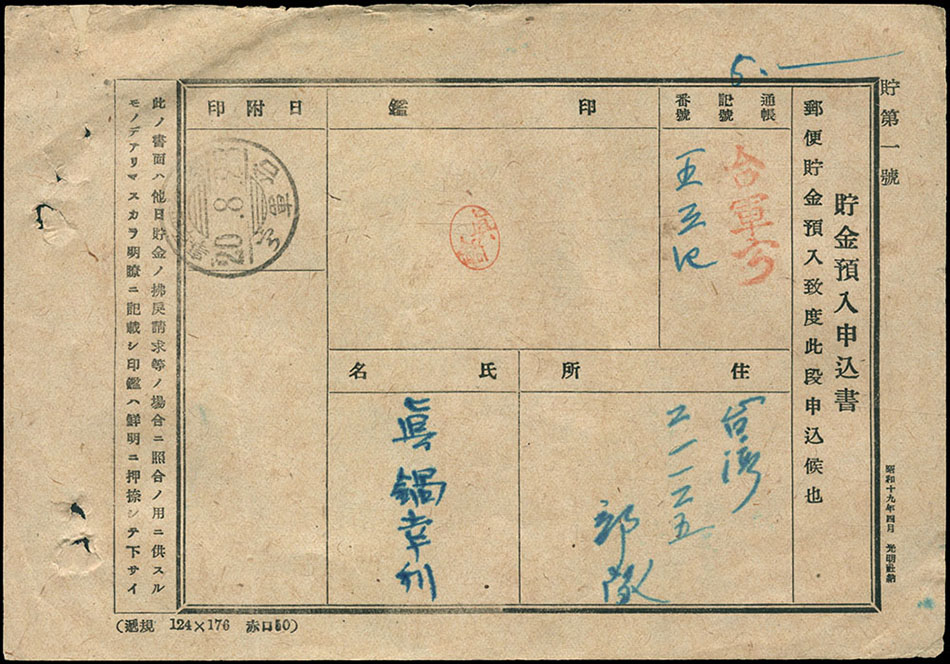 5.
貯第一號
貯金預入申込書
郵便貯金預入致度此段申込候也
通帳
記號
番號
台軍う
印鑑
日附印
20.8.
眞鍋
住所
台湾
二一一二五
部隊
氏名
眞鍋幸
此ノ書面ハ他日貯金ノ拂戻請求等ノ場合ニ照合ノ用ニ供スル
モノデアリマスカラ明瞭ニ記載シ印鑑ハ鮮明ニ押捺シテ下サイ
昭和十九年四月 光明社納
(遞規 124×176 赤口50)